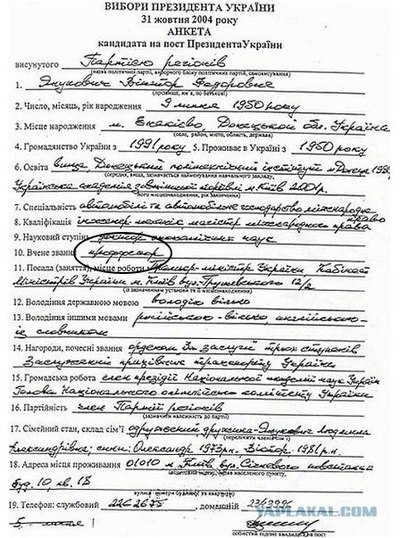 ВИБОРИ ПРЕЗИДЕНТА УКРАЇНИ
31 жовтня 2004 року
АНКЕТА
кандидата на пост Президента України
висунутого Партією регіонів
(назва політичної партії, виборчого блоку політичних партій, самовисування)
1. Янукович Віктор Федорович
(прізвище, ім'я, по батькові)
2. Число, місяць, рік народження 9 липня 1950 року
3. Місце народження м. Єнакієво Донецької обл. Україна
(село, район, місто, область, держава)
4. Громадянство України з 1991 року 5. Проживає в Україні з 1950 року
6. Освіта вища Донецький політехнічний інститут м. Донецьк
Українська академія зовнішньої торгівлі м. Київ 2001р.
7. Спеціальність автомобілі та автомобільне господарство міжнародне право
8. Кваліфікація інженер механік магістр міжнародного права
9. Науковий ступінь доктор економічних наук
10. Вчене звання проффесор
11. Посада (заняття), місце роботи Премьєр-міністр України Кабінет
Міністрів України м. Київ вул. Грушевського 12/2
(із зазначенням установи та її місцезнаходження)
12. Володіння державною мовою володію вільно
13. Володіння іншими мовами російською - вільно, англійською -
із словником
14. Нагороди, почесні звання орденом За заслуги трьох ступенів
Заслужений працівник транспорту України
15. Громадська робота член президії Національної академії наук України
Голова Національного олімпійського комітету України
16. Партійність член Партії регіонів
(зазначити належність до партії)
17. Сімейний стан, склад сім'ї одружений дружина - Янукович Людмила
Александрівна; сини: Олександр 1973р.н. Віктор 1981р.н.
18. Адреса місця проживання 01010 м. Київ вул.
буд. 10, кв. 18
19. Телефон: службовий 2262675, домашній
YAPLAKAL.COM
особистий підпис кандидата на пост